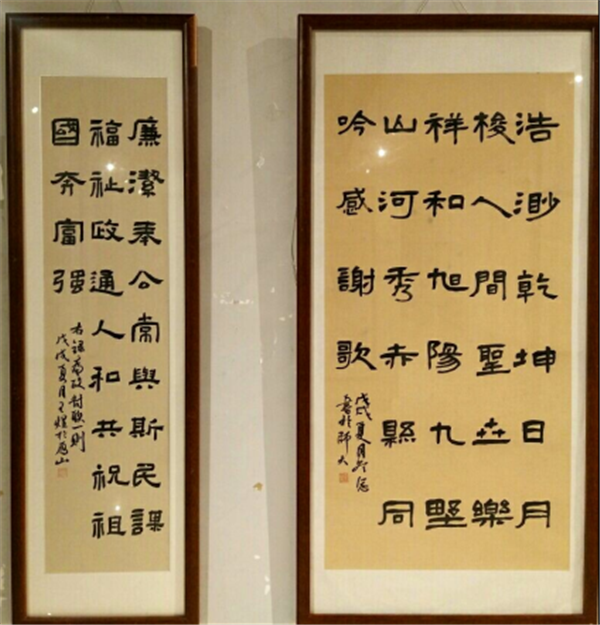 浩渺乾坤日月
梭人間聖世樂
祥和旭陽九野
山河秀赤縣同
吟感謝歌
戊戌夏月
書於師大
廉潔奉公常與斯民謀
福祉政通人和共祝祖
國奔富强
右録廉政對聯一則
戊戌夏月王煜於